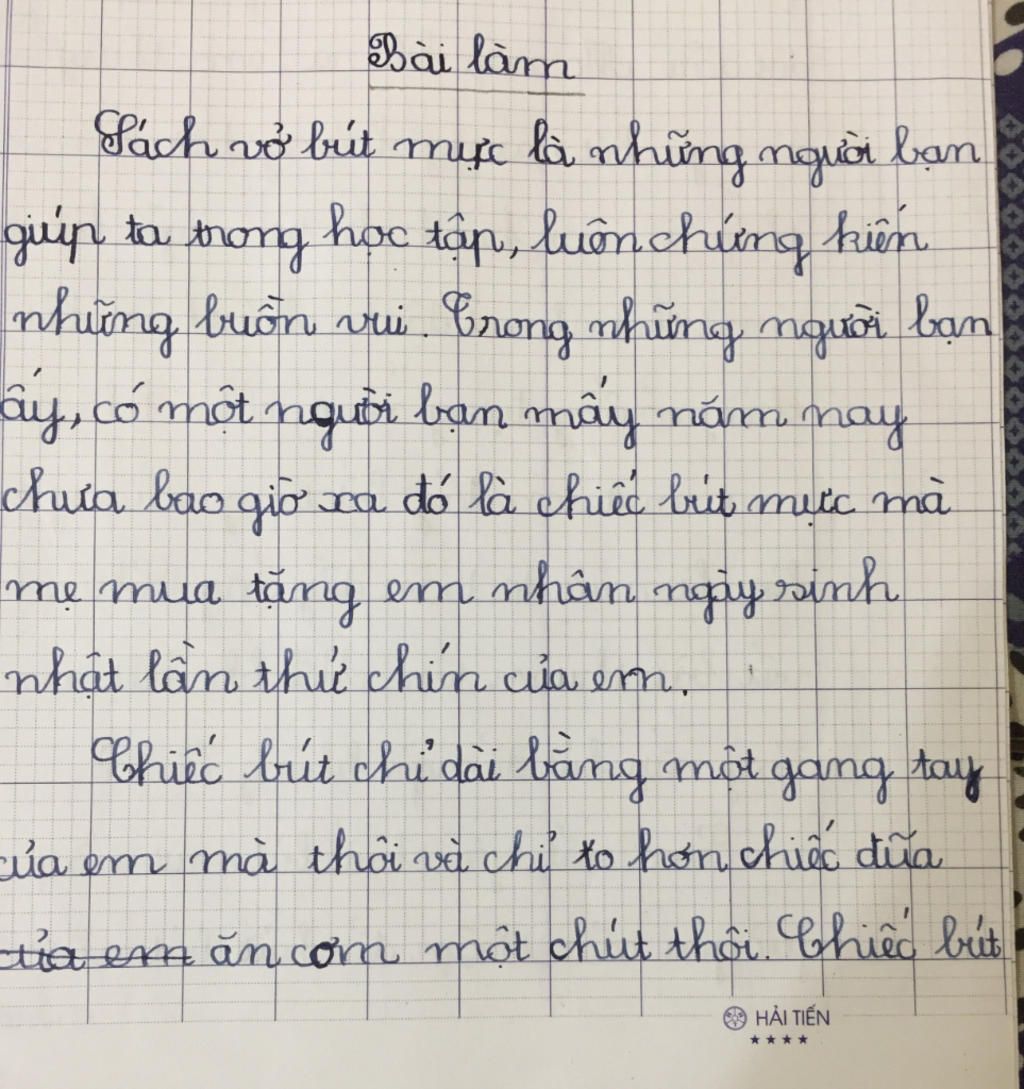 Bài làm
Sách vở bút mực là những người bạn
giúp ta trong học tập, luôn chứng kiến
những buồn vui. Trong những người bạn
ấy, có một người bạn mấy năm nay
chưa bao giờ xa đó là chiếc bút mực mà
mẹ mua tặng em nhân ngày sinh
nhật lần thứ chín của em.
Chiếc bút chỉ dài bằng một gang tay
của em mà thôi và chỉ to hơn chiếc đũa
của em ăn cơm một chút thôi. Chiếc bút
HẢI TIẾN